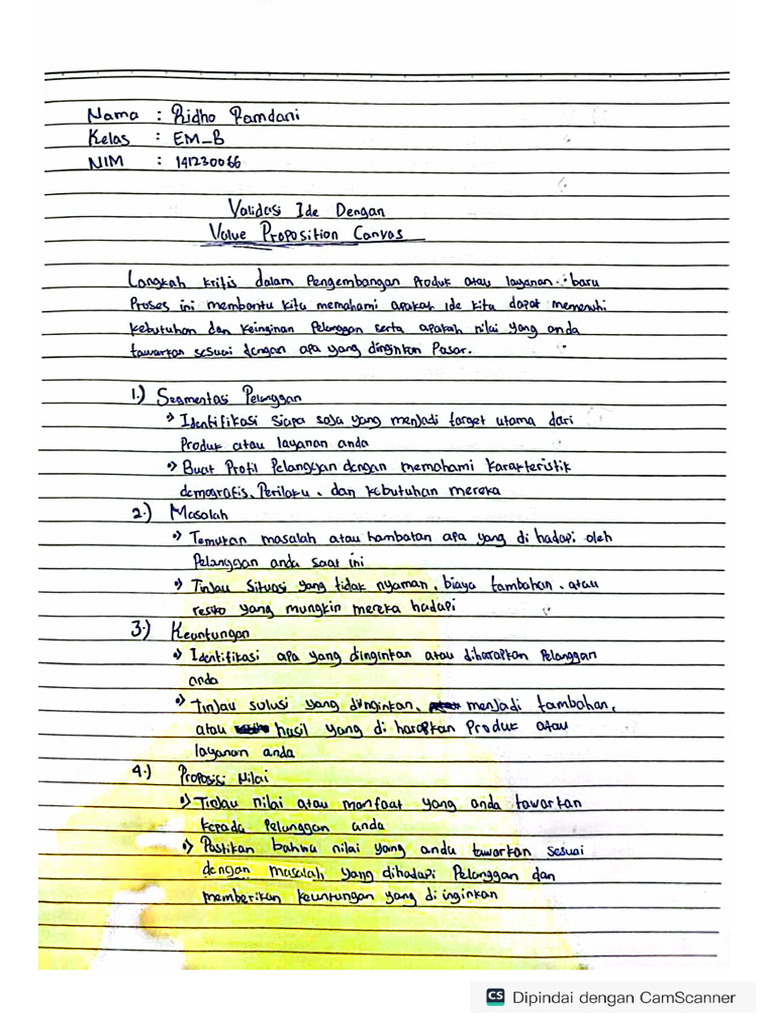 Nama : Ridho Ramdani
Kelas : EM_B
NIM : 141230066
Validasi Ide Dengan
Value Proposition Canvas
Langkah kritis dalam Pengembangan Produk atau layanan baru
Proses ini membantu kita memahami apakah ide kita dapat memenuhi
kebutuhan dan keinginan Pelanggan serta apakah nilai yang anda
tawarkan sesuai dengan apa yang diinginkan Pasar.
1.) Segmentasi Pelanggan
Identifikasi siapa saja yang menjadi target utama dari
Produk atau layanan anda
Buat Profil Pelanggan dengan memahami karakteristik
demografis, Perilaku, dan kebutuhan mereka
2.) Masalah
Temukan masalah atau hambatan apa yang di hadapi oleh
Pelanggan anda saat ini
Tinjau situasi yang tidak nyaman, biaya tambahan, atau
resiko yang mungkin mereka hadapi
3.) Keuntungan
Identifikasi apa yang diinginkan atau diharapkan Pelanggan
anda
Tinjau solusi yang diinginkan, menjadi tambahan,
atau hasil yang di harapkan Produk atau
layanan anda
4.) Proposisi Nilai
Tinjau nilai atau manfaat yang anda tawarkan
kepada Pelanggan anda
Pastikan bahwa nilai yang anda tawarkan sesuai
dengan masalah yang dihadapi Pelanggan dan
memberikan keuntungan yang di inginkan
CS Dipindai dengan CamScanner